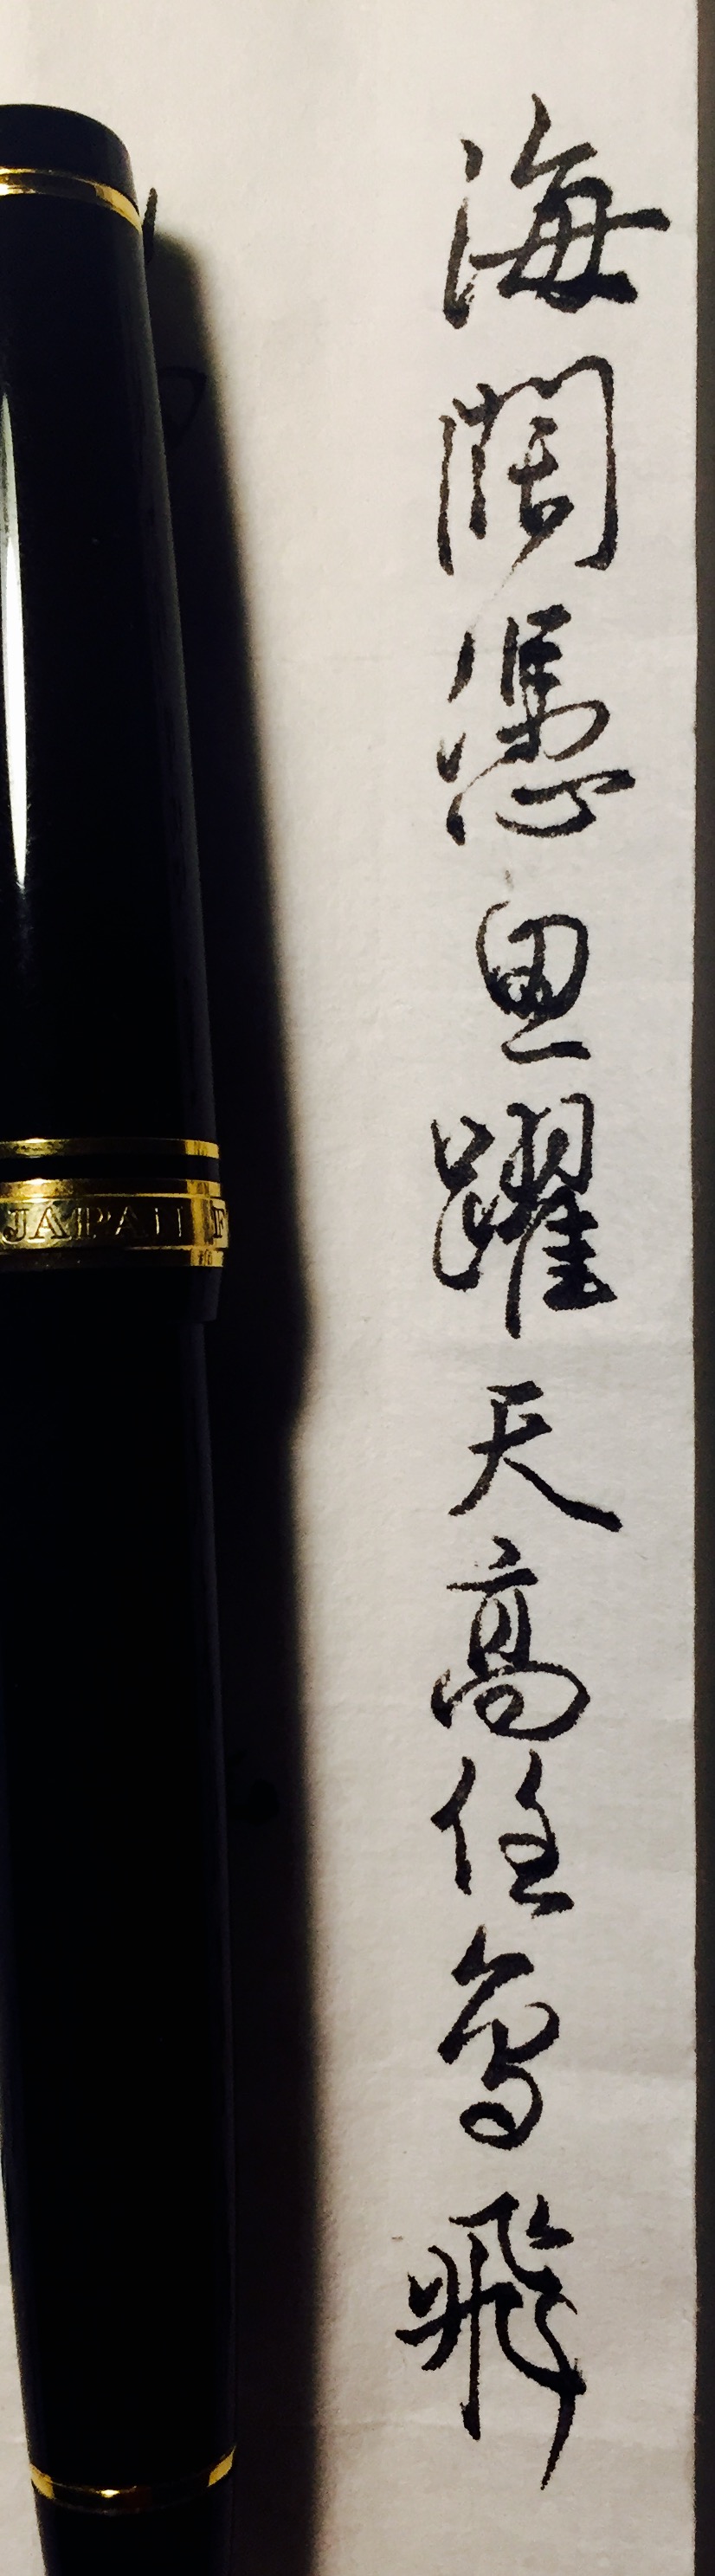 海闊憑魚躍天高任鳥飛
JAPAN F